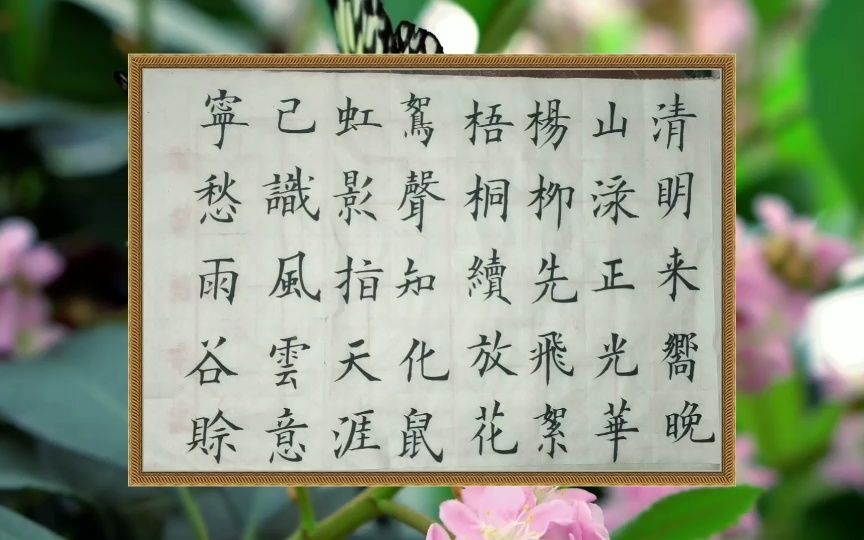 清明来嚮晚
山渌正光華
楊柳先飛絮
梧桐續放花
鴽聲知化鼠
虹影指天涯
已識風雲意
寧愁雨谷賖